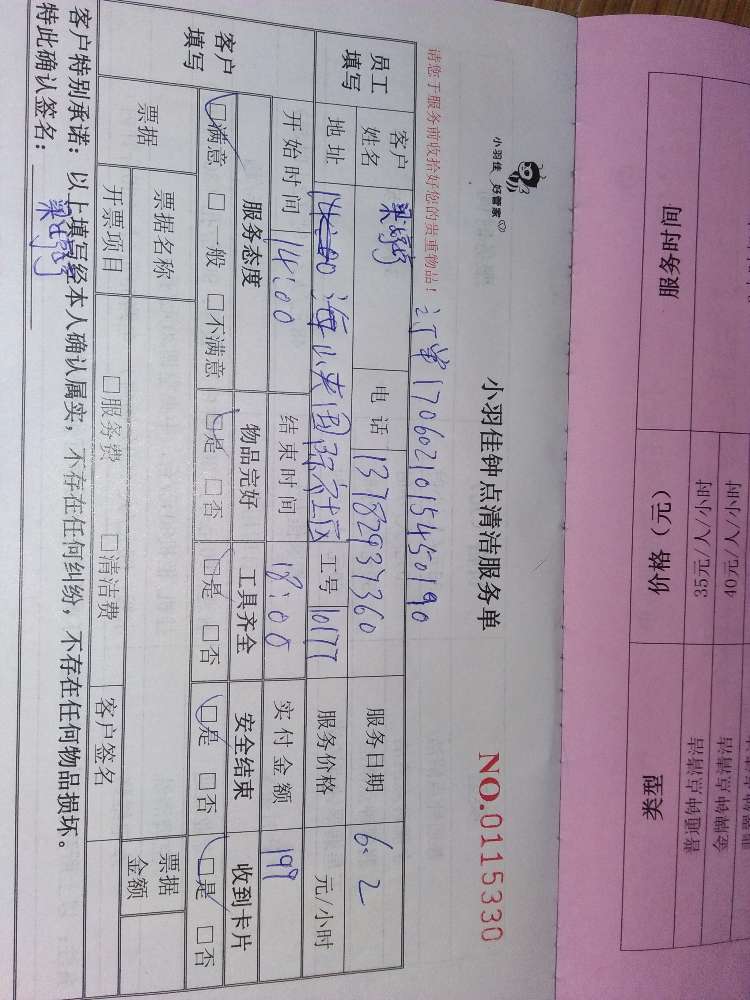 小羽佳 好管家
小羽佳钟点清洁服务单
NO.0115330
请您于服务前收拾好您的贵重物品！
订单1706021015450190
员工填写
客户姓名
电话 13782937360
服务日期 6.2
地址
工号 10177
服务价格 元/小时
开始时间 14:00
结束时间 18:00
实付金额 199
客户填写
服务态度 物品完好 工具齐全 安全结束 收到卡片
□满意 □一般 □不满意 □是 □否 □是 □否 □是 □否 □是 □否
票据
票据名称
票据金额
开票项目 □服务费 □清洁费
客户签名
客户特别承诺：以上填写经本人确认属实，不存在任何纠纷，不存在任何物品损坏。
特此确认签名：
服务时间 价格（元） 类型
35元/人/小时 普通钟点清洁
40元/人/小时 金牌钟点清洁